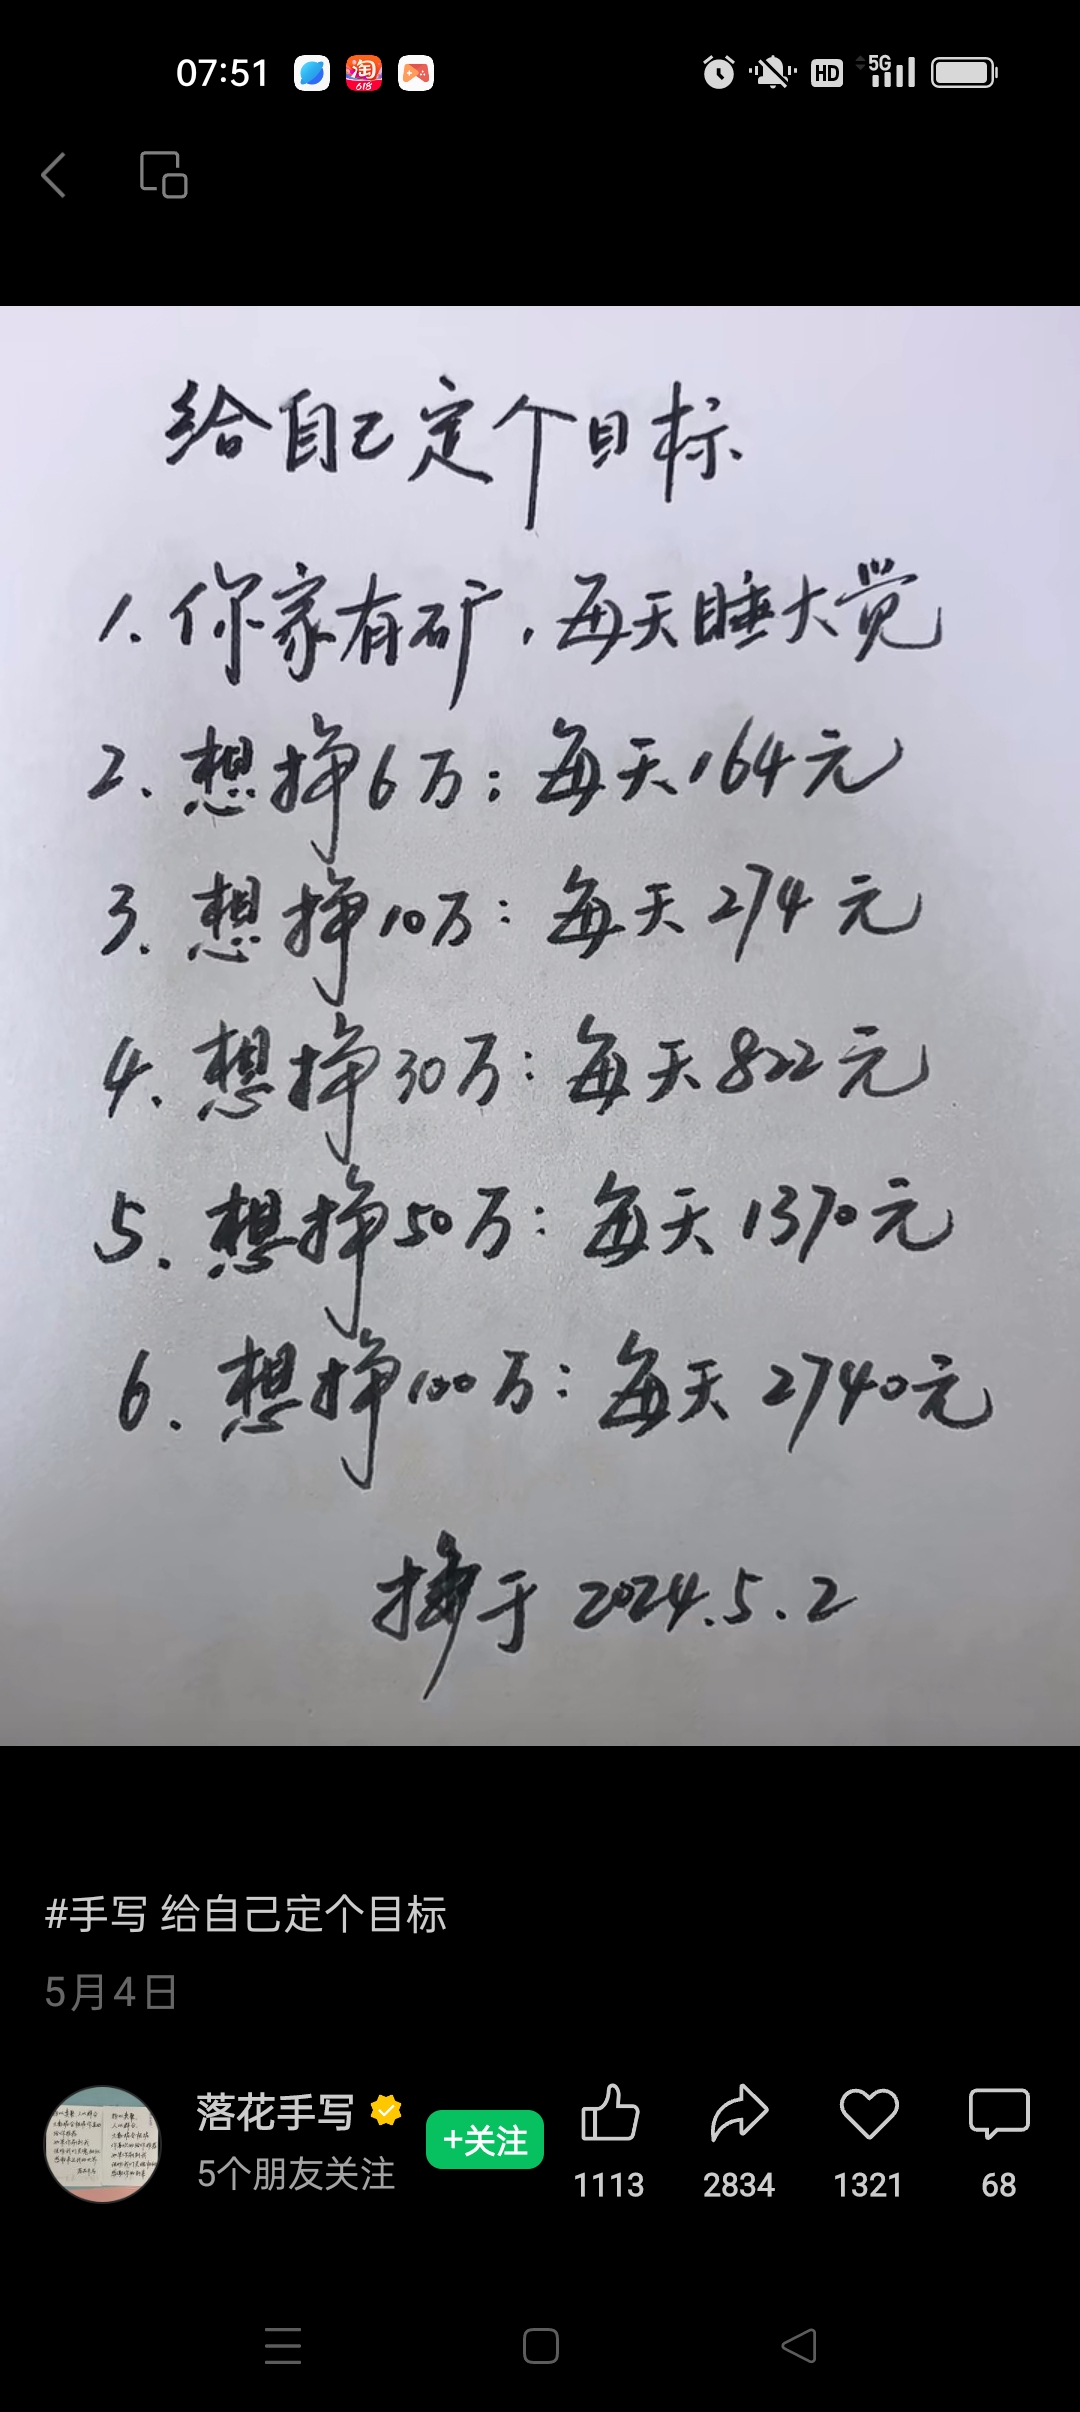 07:51
淘
618
HD
5G
给自己定个目标
1. 你家有矿，每天睡大觉
2. 想挣6万：每天164元
3. 想挣10万：每天274元
4. 想挣30万：每天822元
5. 想挣50万：每天1370元
6. 想挣100万：每天2740元
于 2024.5.2
#手写 给自己定个目标
5月4日
落花手写
5个朋友关注
+关注
1113
2834
1321
68